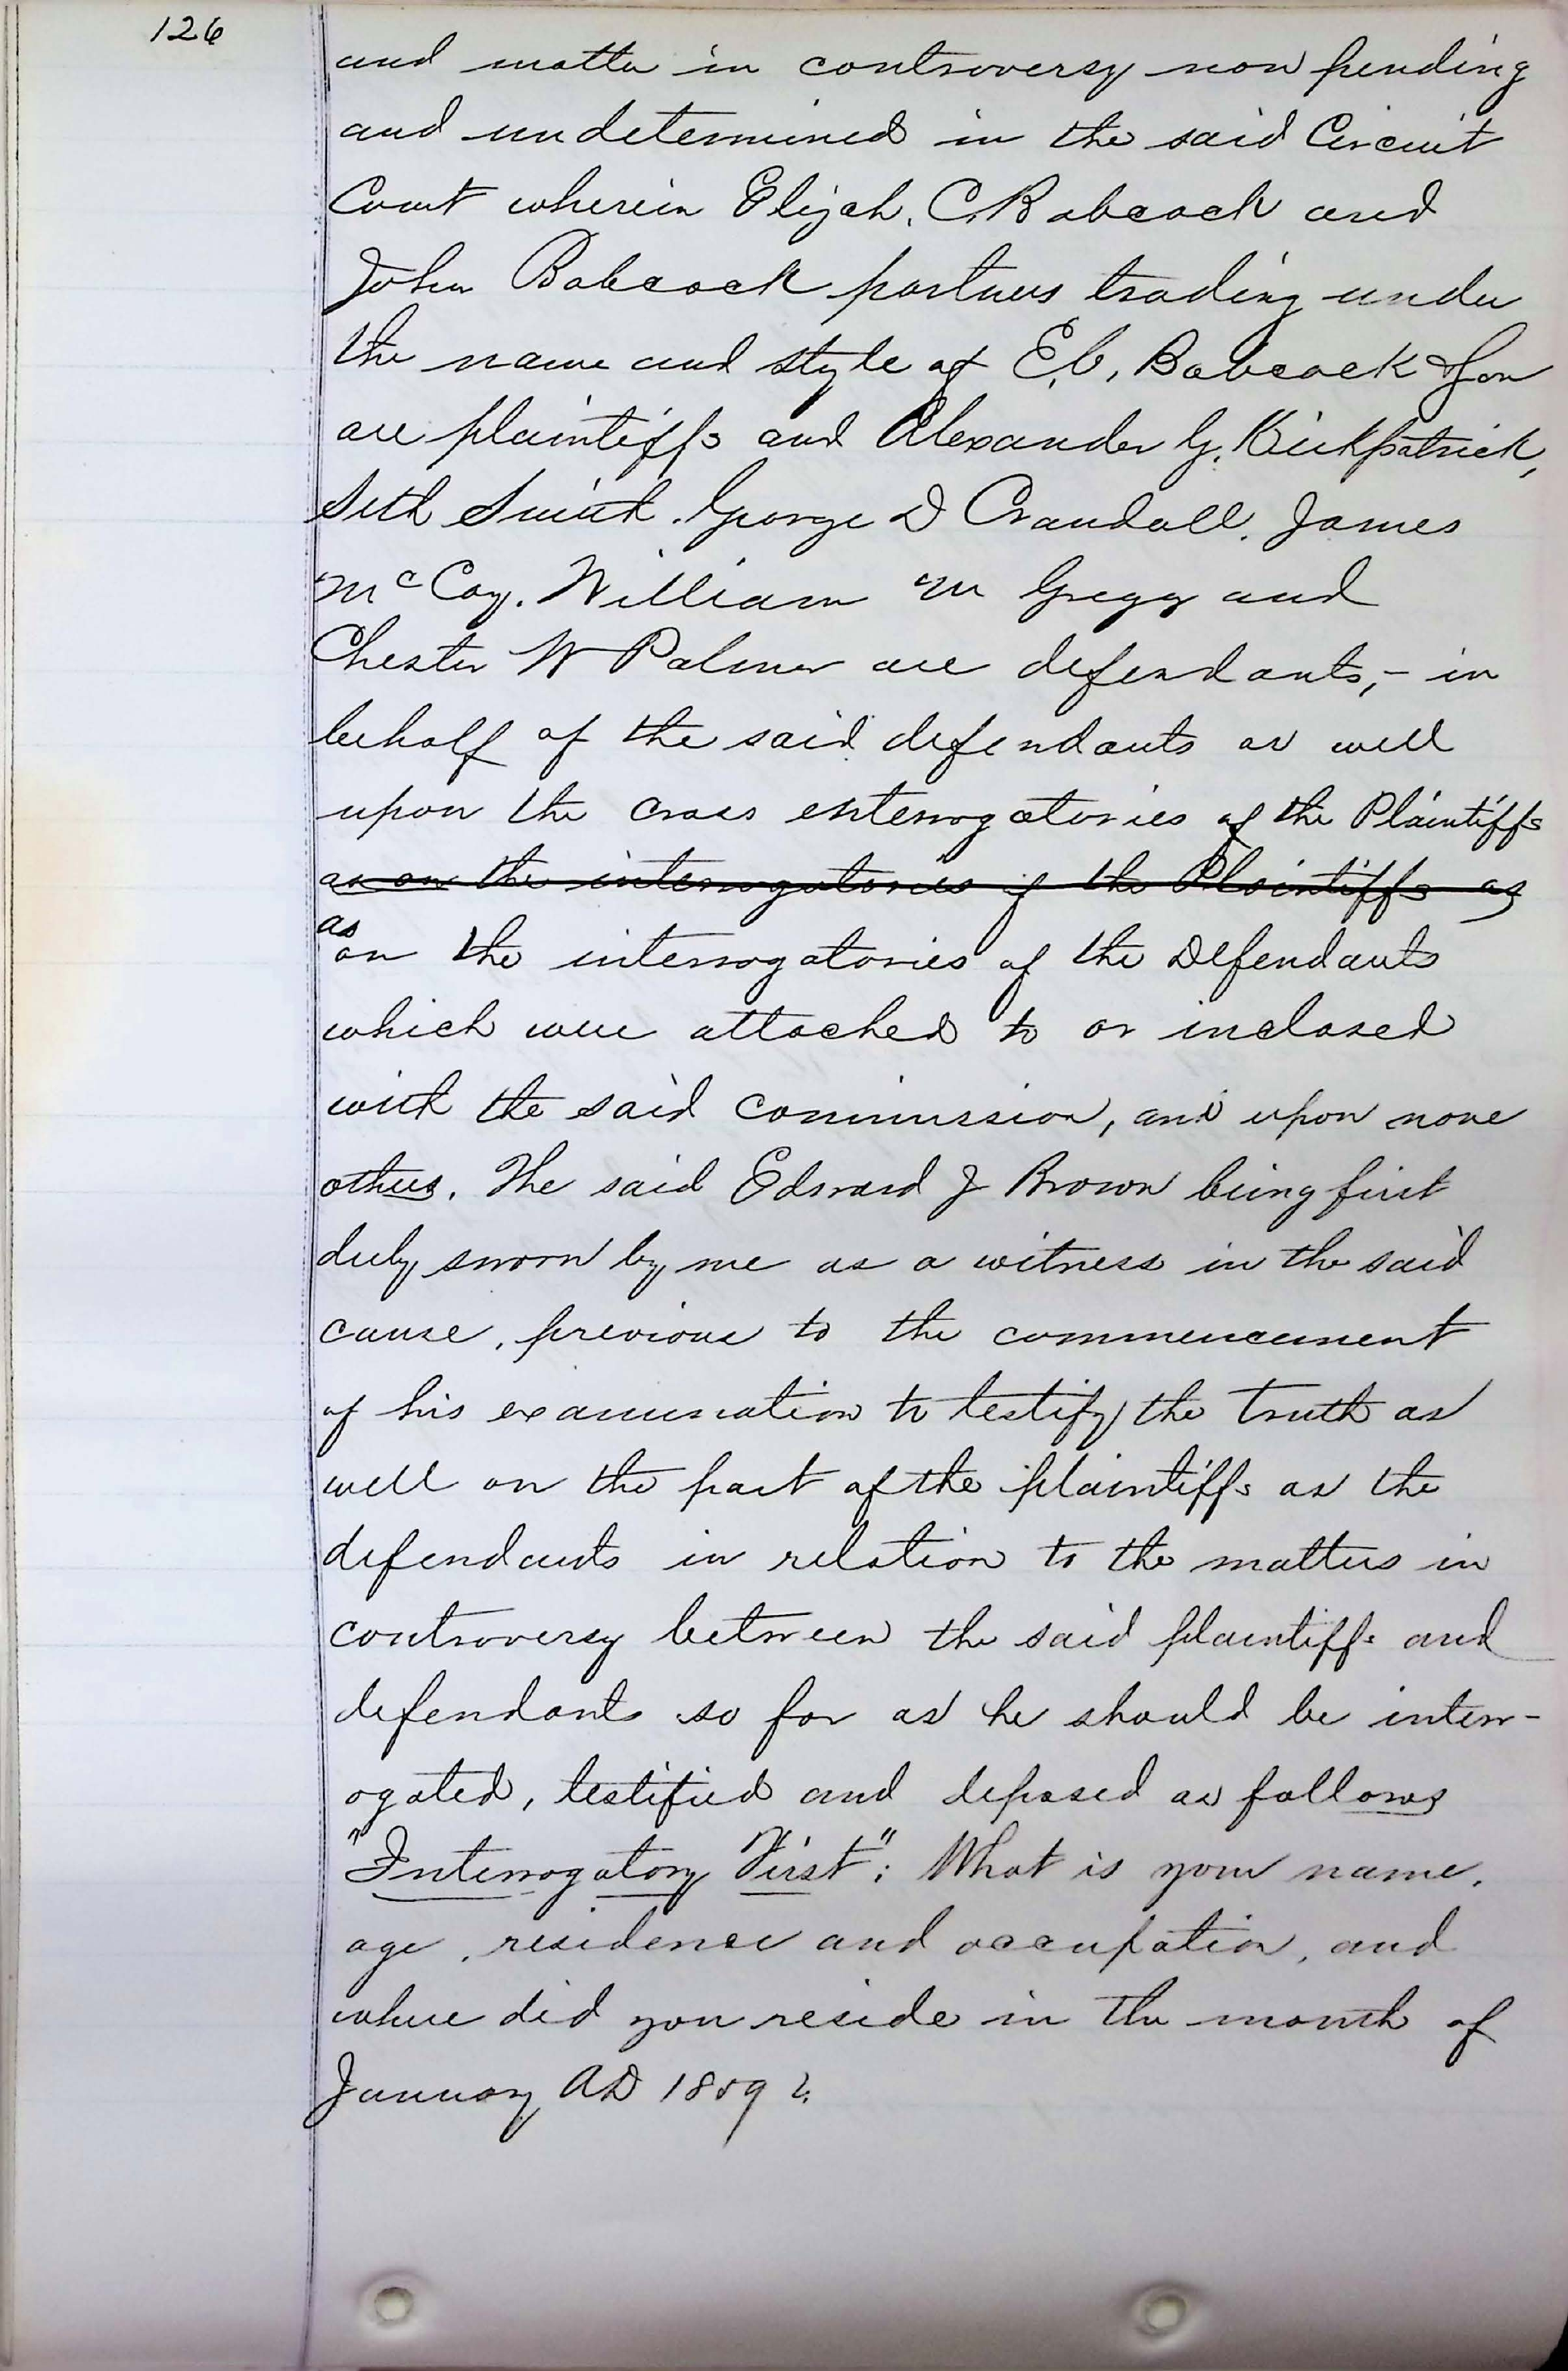 126
and matter in controversy now pending
and undetermined in the said Circuit
Court wherein Elijah. C. Babcock and
John Babcock partners trading under
the name and style of E. C. Babcock & Son
are plaintiffs and Alexander G. Kirkpatrick,
Seth Smith. George D Crandall. James
McCoy. William M Gregg and
Chester W Palmer are defendants, - in
behalf of the said defendants as well
upon the cross enterrogatories of the Plaintiffs
as on the interrogatories of the Plaintiffs as
as
on the interrogatories of the Defendants
which were attached to or inclosed
with the said commission, and upon none
others. The said Edward J Brown being first
duly sworn by me as a witness in the said
cause, previous to the commencement
of his examination to testify the truth as
well on the part of the plaintiffs as the
defendants in relation to the matters in
controversy between the said plaintiffs and
defendants so far as he should be interr-
ogated, testified and deposed as follows
"Interrogatory First": What is your name,
age, residence and occupation, and
where did you reside in the month of
January AD 1859?